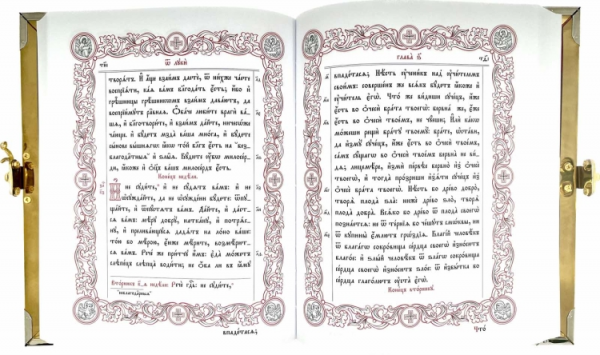 ти҃ ѿ лꙋкѝ
творѧ́тъ. И҆ а҆́ще взаи́мъ даетѐ, ѿ ни́хже ча́ете
воспрїѧ́ти, ка́ѧ ва́мъ бл҃года́ть є҆́сть; и҆́бо и҆
грѣ̑шницы грѣ́шникѡмъ взаи́мъ дава́ютъ, да
воспрїи́мꙋтъ ра̑внаѧ. Ѻ҆ба́че люби́те врагѝ ва́-
шѧ, и҆ благотвори́те, и҆ взаи́мъ да́йте, ничесо́же
ча́юще: и҆ бꙋ́детъ мзда̀ ва́ша мно́га, и҆ бꙋ́дете
сы́нове вы́шнѧгѡ: ꙗ҆́кѡ то́й бл҃гъ є҆́сть на *без-
благода̑тныѧ и҆ ѕлы̑ѧ. Бꙋ́дите ᲂу҆̀бо милосе́р-
ди, ꙗ҆́коже и҆ ѻ҆ц҃ъ ва́шъ млⷭ҇рдъ є҆́сть.
Коне́цъ недѣ́ли.
И҆ не сꙋди́те, и҆ не сꙋ́дѧтъ ва́мъ: и҆ не
ѡ҆сꙋжда́йте, да не ѡ҆сꙋжде́ни бꙋ́дете: ѿпꙋ-
ща́йте, и҆ ѿпꙋ́стѧтъ ва́мъ: Да́йте, и҆ да́ст-
сѧ ва́мъ: мѣ́рꙋ добрꙋ̀, натка́нꙋ, и҆ потрѧ́с-
нꙋ, и҆ прелива́ющꙋсѧ дадѧ́тъ на ло́но ва́ше:
то́ю бо мѣ́рою, є҆́юже мѣ́рите, возмѣ́рит-
сѧ ва́мъ. Рече́ же при́тчꙋ и҆̀мъ: є҆да̀ мо́жетъ
слѣпе́цъ слѣпца̀ води́ти; не ѻ҆́ба ли въ ꙗ҆́мꙋ
Речѐ гдⷭ҇ь: не сꙋди́те,
*неблагода̑рныѧ
впаде́тасѧ;
глава̀ ѕ҃
впаде́тасѧ; Нѣ́сть ᲂу҆чени́къ над̾ ᲂу҆чи́телѧ
своего̀: соверше́нъ же всѧ́къ бꙋ́детъ ꙗ҆́коже и҆
ᲂу҆чи́тель є҆гѡ̀. Что́ же ви́диши сꙋче́цъ, и҆́же
є҆́сть во ѻ҆́чеси бра́та твоегѡ̀, бервна́ же, є҆́же
є҆́сть во ѻ҆́чеси твое́мъ, не чꙋ́еши; И҆лѝ ка́кѡ
мо́жеши рещѝ бра́тꙋ твоемꙋ̀: бра́те, ѡ҆ста́ви,
да и҆змꙋ̀ сꙋче́цъ, и҆́же є҆́сть во ѻ҆́чеси твое́мъ,
са́мъ сꙋ́щагѡ во ѻ҆́чеси твое́мъ бервна̀ не ви́-
дѧ; лицемѣ́ре, и҆змѝ пе́рвѣе бервно̀ и҆з̾ ѻ҆чесѐ
твоегѡ̀, и҆ тогда̀ про́зриши и҆з̾ѧ́ти сꙋче́цъ и҆з̾
ѻ҆чесѐ бра́та твоегѡ̀. Нѣ́сть бо дре́во добро̀,
творѧ̀ плода̀ ѕла̀: нижѐ дре́во ѕло̀, творѧ̀
плода̀ добра̀. Всѧ́ко бо дре́во ѿ плода̀ своегѡ̀
познае́тсѧ: не ѿ те́рнїѧ бо че́шꙋтъ смѡ́квы, ни
ѿ кꙋпины̀ є҆́млютъ гро́здїѧ. Бл҃гі́й человѣ́къ
ѿ бл҃га́гѡ сокро́вища се́рдца своегѡ̀ и҆зно́ситъ
бл҃го́е: и҆ ѕлы́й человѣ́къ ѿ ѕла́гѡ сокро́вища
се́рдца своегѡ̀ и҆зно́ситъ ѕло́е: ѿ и҆збы́тка бо
се́рдца глаго́лютъ ᲂу҆ста̀ є҆гѡ̀.
Коне́цъ вто́рникꙋ
Что́